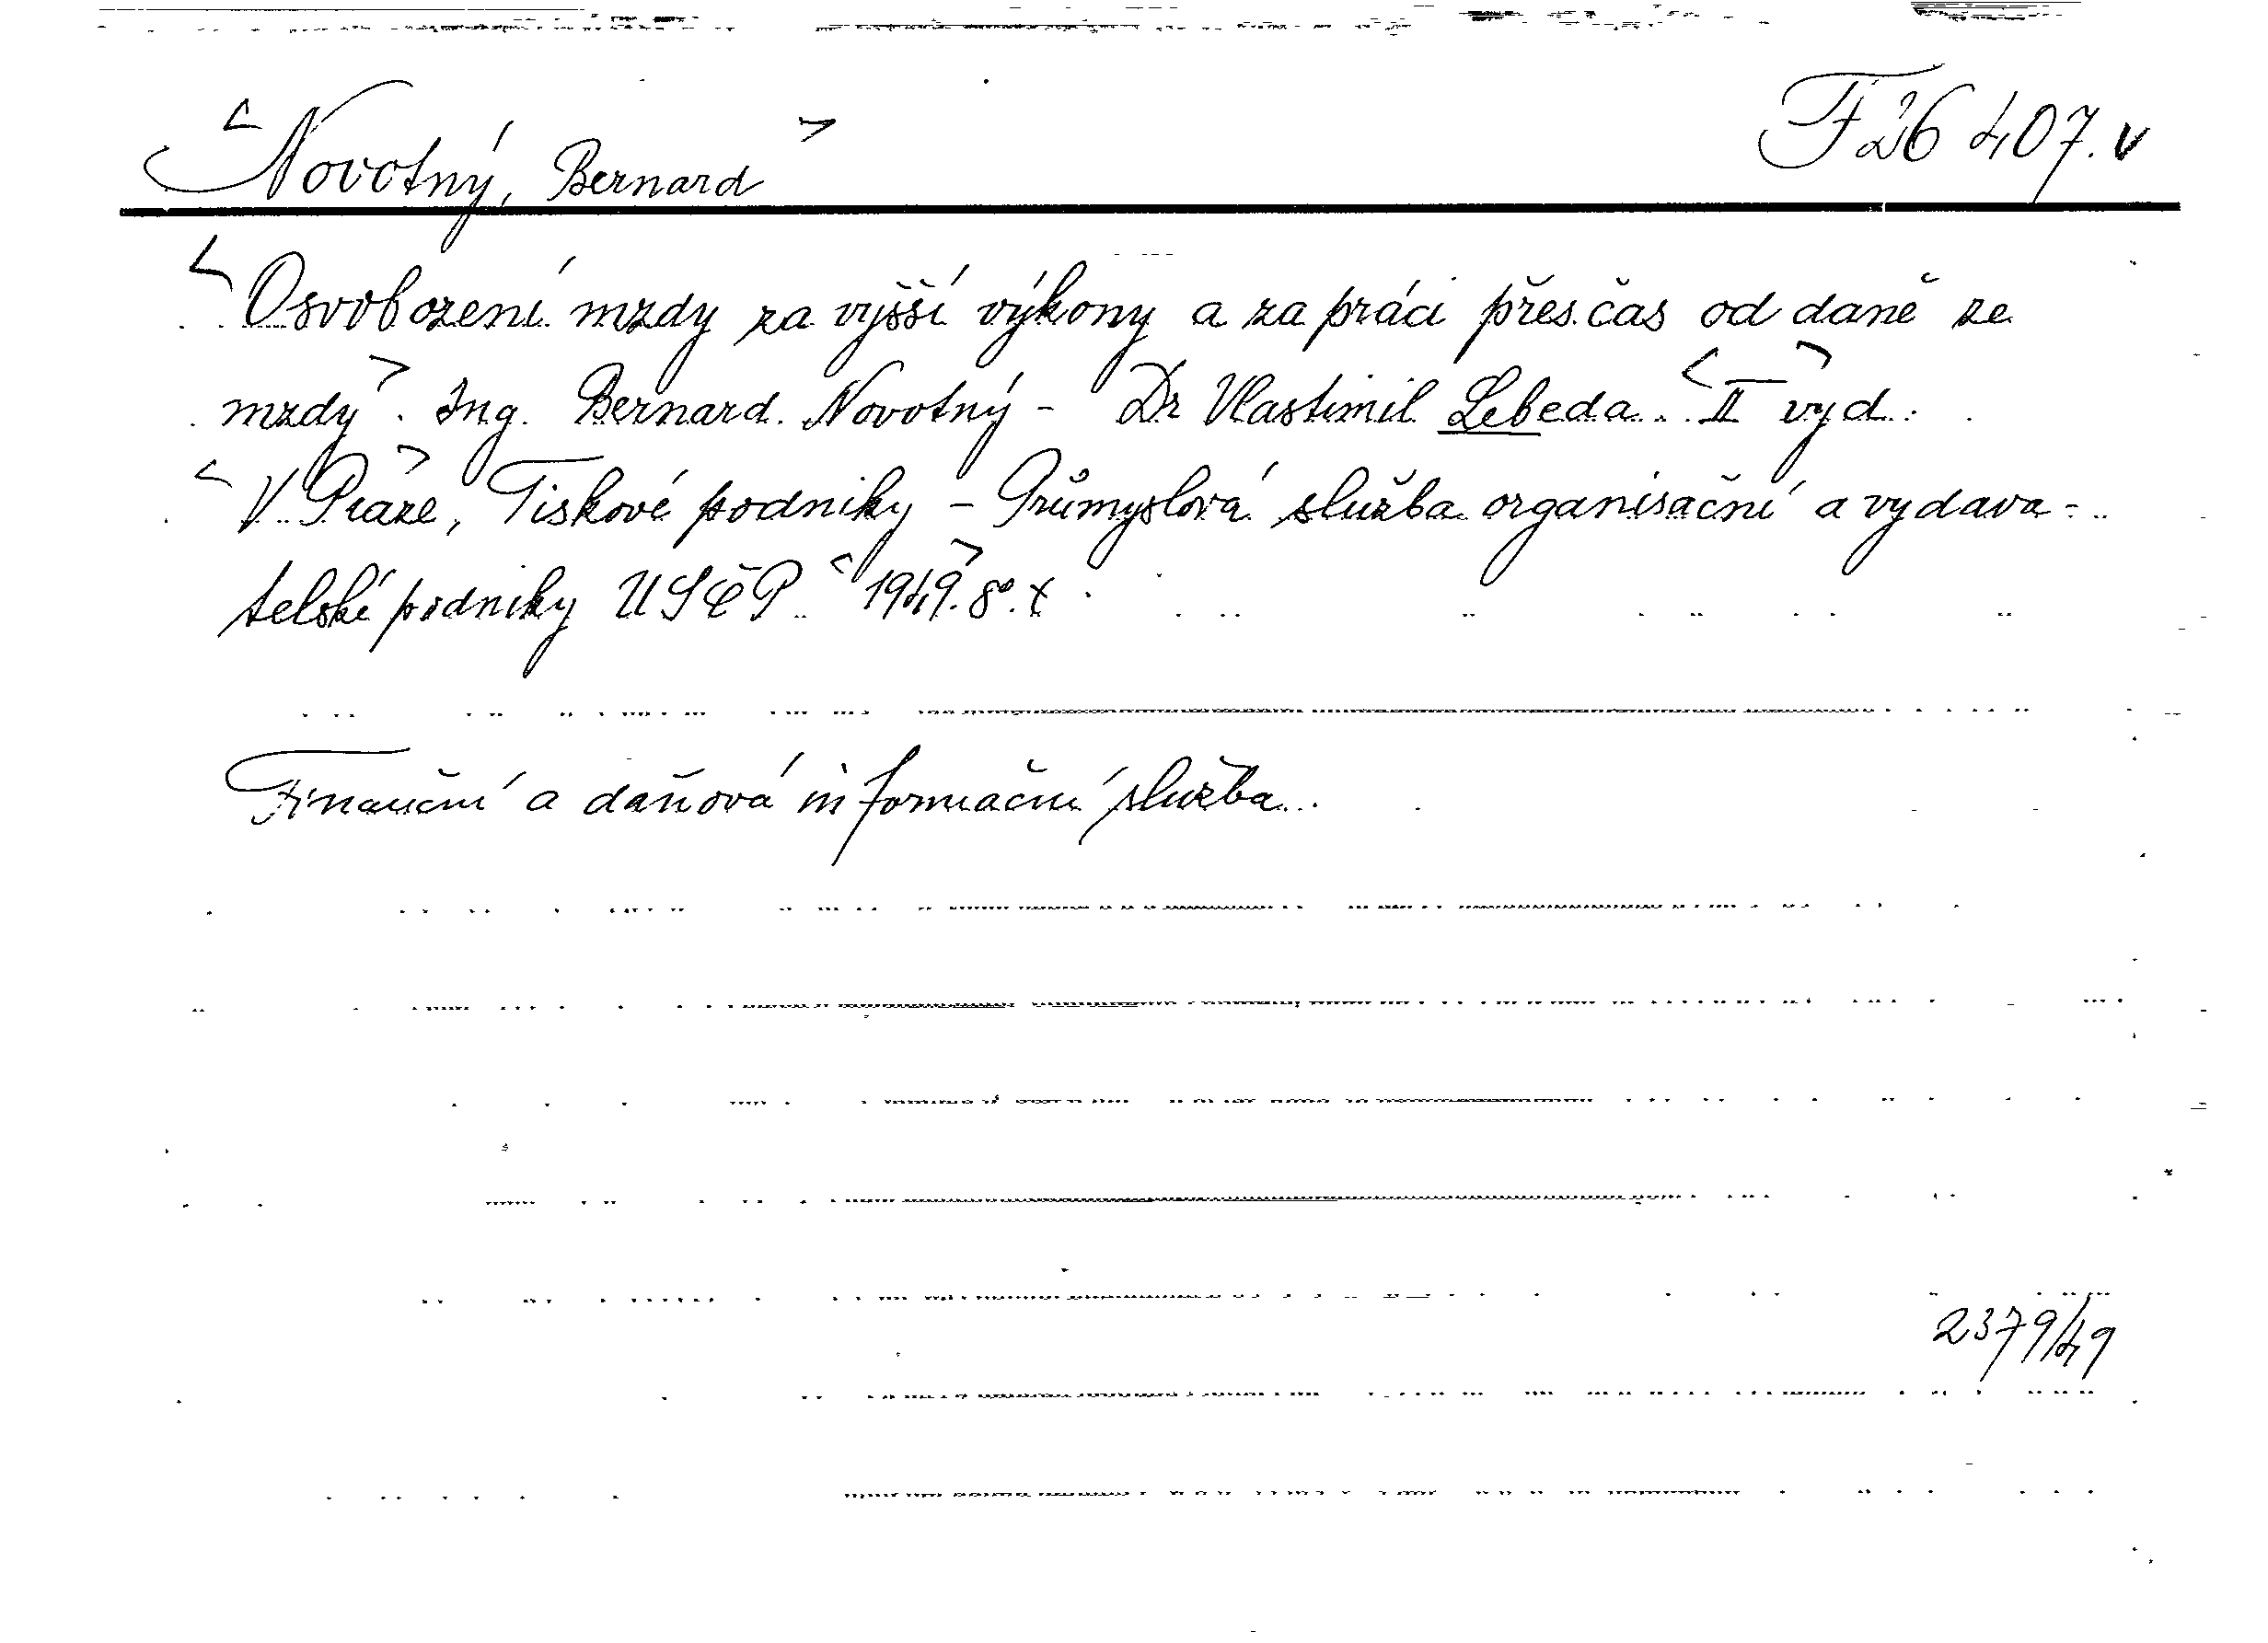 <Novotný, Bernard>
F 26 407. v
<Osvobození mzdy za vyšší výkony a za práci přes čas od daně ze
mzdy>. Ing. Bernard Novotný - Dr Vlastimil Lebeda. <II vyd>.
<V Praze>, Tiskové podniky - Průmyslová služba organisační a vydava-
telské podniky USČP <1949>. 8°.
Finanční a daňová informační služba.
2379/49